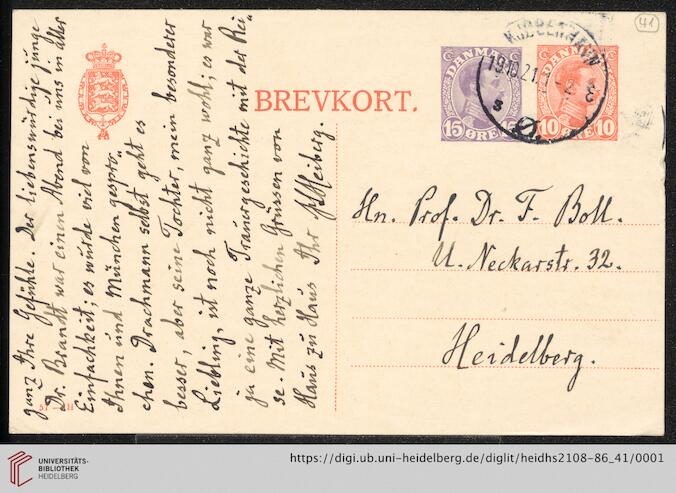 41
BREVKORT.
DANMARK
15 ØRE 15
DANMARK
10 ØRE 10
KJØBENHAVN
19.10.21.
Ø.
Hn. Prof. Dr. F. Boll.
U. Neckarstr. 32.
Heidelberg.
ganz Ihre Gefühle. Der liebenswürdige junge
Dr. Brandt war einen Abend bei uns in aller
Einfachkeit; es wurde viel von
Ihnen und München gespro-
chen. Drachmann selbst geht es
besser, aber seine Tochter, mein besonderer
Liebling, ist noch nicht ganz wohl; es war
ja eine ganze Trauergeschichte mit der Rei-
se. Mit herzlichen Grüssen von
Haus zu Haus Ihr JLHeiberg.
UNIVERSITÄTS-
BIBLIOTHEK
HEIDELBERG
https://digi.ub.uni-heidelberg.de/diglit/heidhs2108-86_41/0001